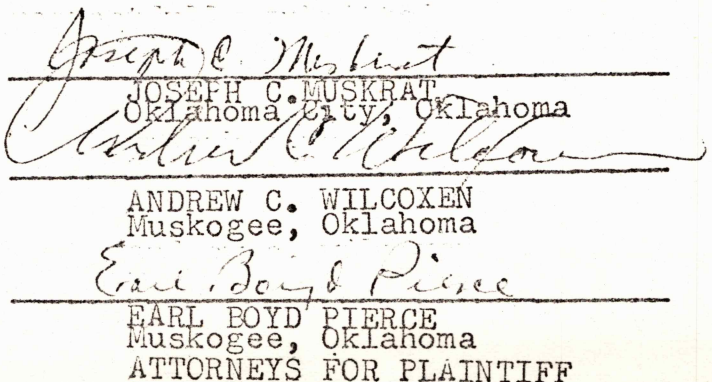 Joseph C. Muskrat
JOSEPH C.MUSKRAT
Oklahoma City, Oklahoma
Andrew C. Wilcoxen
ANDREW C. WILCOXEN
Muskogee, Oklahoma
Earl Boyd Pierce
EARL BOYD PIERCE
Muskogee, Oklahoma
ATTORNEYS FOR PLAINTIFF